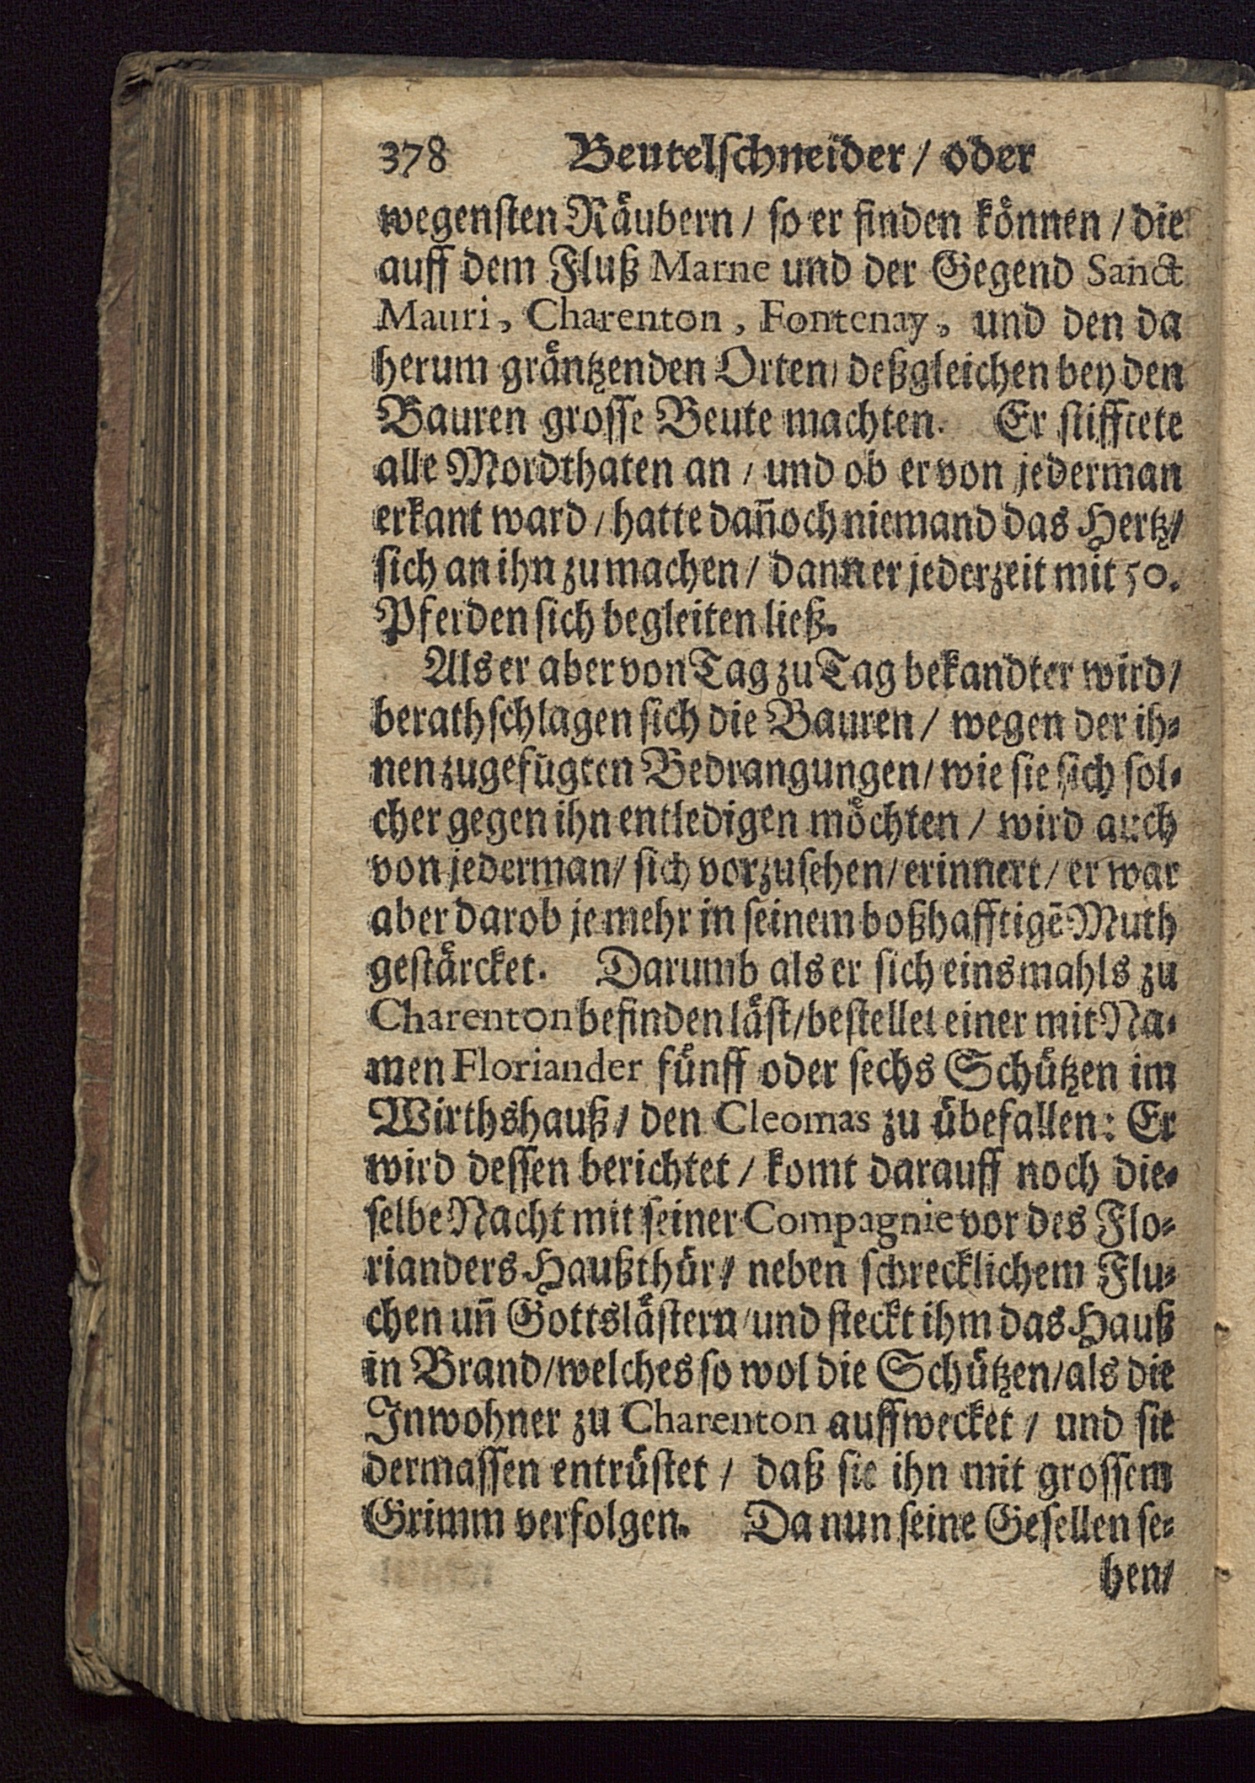 378 Beutelschneider / oder
wegensten Räubern / so er finden können / die
auff dem Fluß Marne und der Gegend Sanct
Mauri, Charenton, Fontenay, und den da
herum gräntzenden Orten / deßgleichen bey den
Bauren grosse Beute machten. Er stifftete
alle Mordthaten an / und ob er von jederman
erkant ward / hatte dañoch niemand das Hertz /
sich an ihn zu machen / dann er jederzeit mit 50.
Pferden sich begleiten ließ.
Als er aber von Tag zu Tag bekandter wird /
berathschlagen sich die Bauren / wegen der ih-
nen zugefügten Bedrangungen / wie sie sich sol-
cher gegen ihn entledigen möchten / wird auch
von jederman / sich vorzusehen / erinnert / er war
aber darob je mehr in seinem boßhafftigē Muth
gestärcket. Darumb als er sich einsmahls zu
Charenton befinden läst / bestellet einer mit Na-
men Floriander fünff oder sechs Schützen im
Wirthshauß / den Cleomas zu übefallen: Er
wird dessen berichtet / komt darauff noch die-
selbe Nacht mit seiner Compagnie vor des Flo-
rianders Haußthür / neben schrecklichem Flu-
chen uñ Gottslästern / und steckt ihm das Hauß
in Brand / welches so wol die Schützen / als die
Inwohner zu Charenton auffwecket / und sie
dermassen entrüstet / daß sie ihn mit grossem
Grimm verfolgen. Da nun seine Gesellen se-
hen /